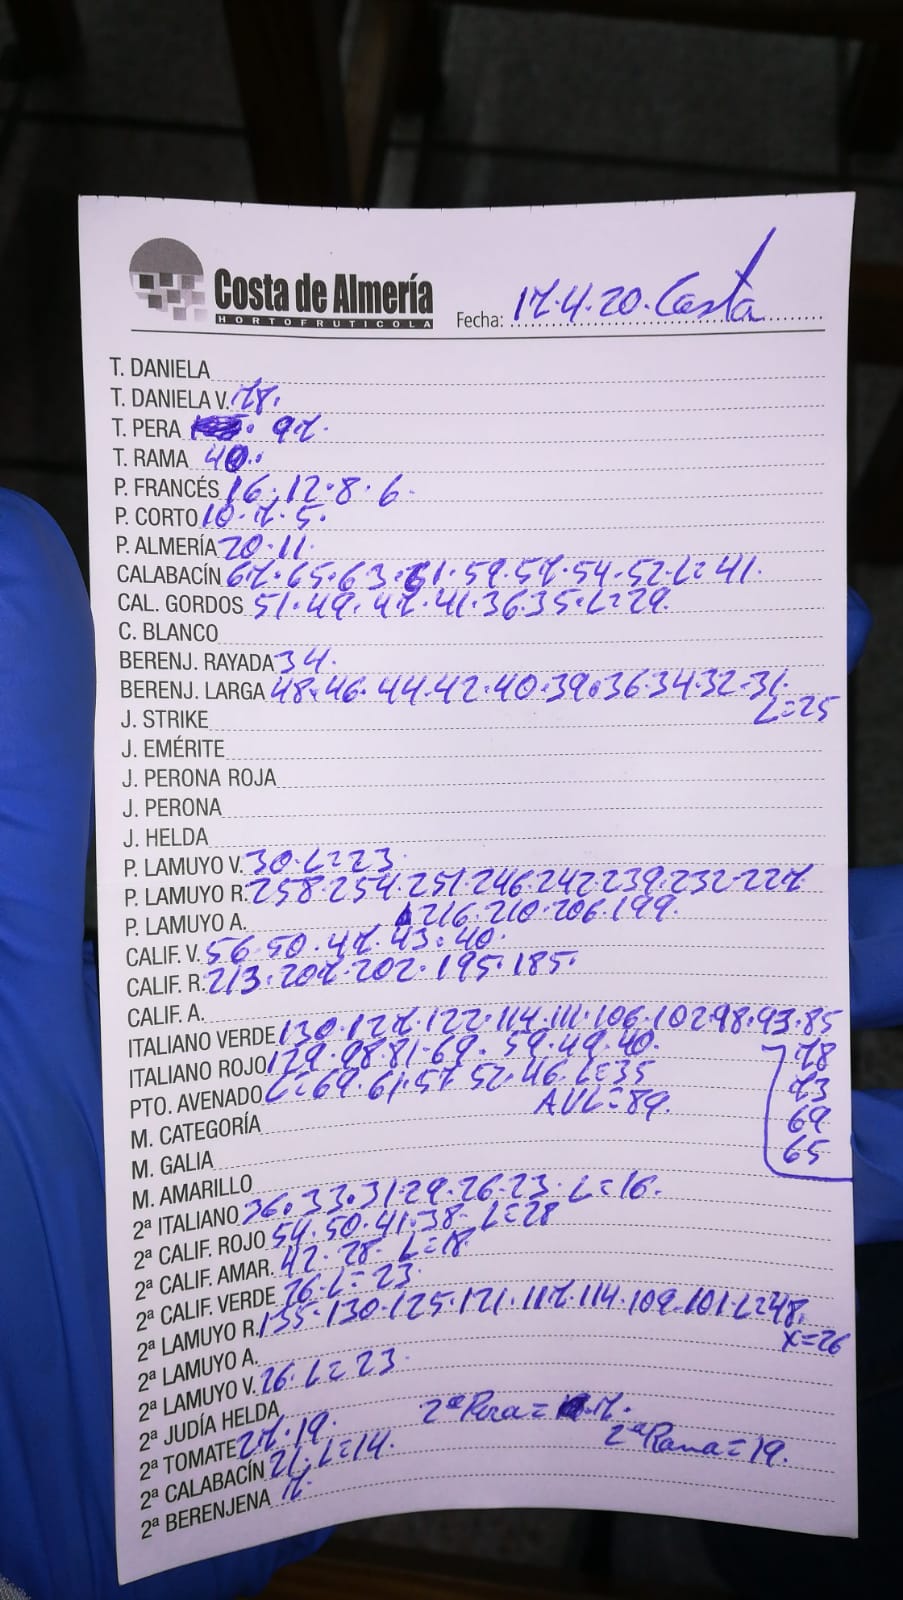 Costa de Almería
HORTOFRUTICOLA
Fecha: 17.4.20. Costa
T. DANIELA
T. DANIELA V. 78.
T. PERA 97.
T. RAMA 40.
P. FRANCÉS 16.12.8.6.
P. CORTO 10.7.5.
P. ALMERÍA 20.11.
CALABACÍN 67.65.63.61.59.57.54.52.L=41.
CAL. GORDOS 51.49.47.41.36.35.L=29.
C. BLANCO
BERENJ. RAYADA 34.
BERENJ. LARGA 48.46.44.42.40.39.36.34.32.31.
L=25
J. STRIKE
J. EMÉRITE
J. PERONA ROJA
J. PERONA
J. HELDA
P. LAMUYO V. 30.L=23.
P. LAMUYO R. 258.254.251.246.242.239.232.227
P. LAMUYO A. 216.210.206.199.
CALIF. V. 56.50.47.43.40.
CALIF. R. 213.207.202.195.185.
CALIF. A.
ITALIANO VERDE 130.127.122.114.111.106.102.98.93.85
78
73
69
65
ITALIANO ROJO 129.98.81.69.59.49.40.
PTO. AVENADO L=69.61.57.52.46.L=35
AVL=89.
M. CATEGORÍA
M. GALIA
M. AMARILLO
2ª ITALIANO 36.33.31.29.26.23.L=16.
2ª CALIF. ROJO 54.50.41.38.L=28
2ª CALIF. AMAR. 42.28.L=18.
2ª CALIF. VERDE 26.L=23.
2ª LAMUYO R. 135.130.125.121.117.114.109.101.L=48.
x=26
2ª LAMUYO A.
2ª LAMUYO V. 26.L=23.
2ª JUDÍA HELDA
2ª Pera= 7.
2ª TOMATE 27.19.
2ª Rama=19.
2ª CALABACÍN 21.L=14.
2ª BERENJENA 7.